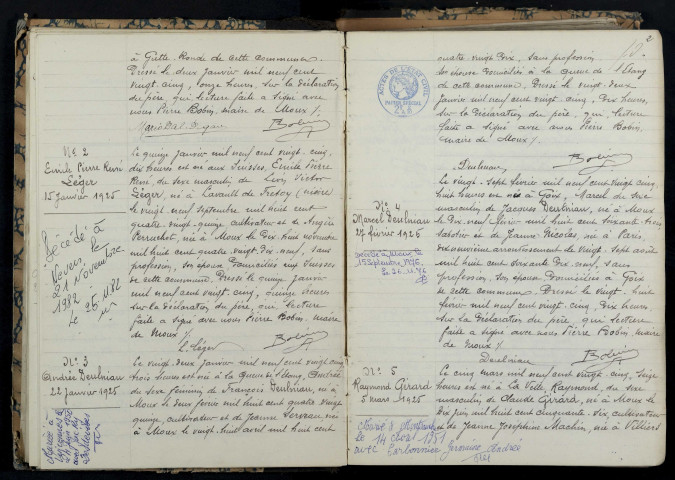 à Gutte Ronde de cette commune.
Dressé le deux Janvier mil neuf cent
vingt-cinq, onze heures, sur la déclaration
du père, qui, lecture faite a signé avec
nous Pierre Bobin, maire de Moux /.
Bobin
N° 2
Emile Pierre René
Léger
15 Janvier 1925
Le quinze Janvier mil neuf cent vingt-cinq,
dix heures est né aux Teisses, Emile Pierre
René, du sexe masculin de
Léger, né à Lavault de Fretoy (Nièvre)
le vingt-neuf septembre mil huit cent
quatre-vingt-dix-neuf cultivateur et de Angèle
Perruchot, née à Moux le dix-huit novembre
mil huit cent quatre-vingt-dix-neuf, sans
profession, son épouse domiciliés aux Teisses
de cette commune. Dressé le quinze Janvier
mil neuf cent vingt-cinq, quinze heures
sur la déclaration du père, qui, lecture
faite a signé avec nous Pierre Bobin, maire
de Moux /.
Léger Bobin
Décédé à
Nevers le
21 Novembre
1982
Le 25.11.82
N° 3
Andrée Deulnian
22 Janvier 1925
Le vingt-deux Janvier mil neuf cent vingt-cinq
trois heures est née à la Queue de l'Etang, Andrée
du sexe féminin de François Deulnian, né à
Moux le deux février mil huit cent quatre-vingt
quinze, cultivateur et de Jeanne Serveau née
à Moux le vingt-huit avril mil huit cent
Mariée à
2
ACTES DE L'ETAT CIVIL
PAPIER SPECIAL
quatre-vingt-dix, sans profession
son épouse domiciliés à la Queue de l'Etang
de cette commune. Dressé le vingt-deux
Janvier mil neuf cent vingt-cinq, dix heures,
sur la déclaration du père, qui, lecture
faite a signé avec nous Pierre Bobin,
maire de Moux /.
Deulnian, Bobin
N° 4
Marcel Deulnian
27 février 1925
Décédé à
15 Septembre 1976
Le vingt-sept février mil neuf cent vingt cinq
huit heures est né à Goix, Marcel du sexe
masculin de Jacques Deulnian, né à Moux
le dix-neuf février mil huit cent soixante-trois
sabotier et de Jeanne Nicolas, née à Paris
dix neuvième arrondissement le vingt-sept août
mil huit cent quatre-vingt-dix-neuf, sans
profession, son épouse domiciliés à Goix
de cette commune. Dressé le vingt-huit
février mil neuf cent vingt-cinq, dix heures,
sur la déclaration du père qui, lecture
faite a signé avec nous Pierre Bobin, maire
de Moux /.
Deulnian Bobin
N° 5
Raymond Girard
5 mars 1925
Le cinq mars mil neuf cent vingt-cinq, seize
heures est né à La Velle, Raymond, du sexe
masculin de Claude Girard, né à Moux le
dix juin mil huit cent cinquante-six, cultivateur
et de Jeanne Joséphine Machin, née à Villiers
Marié à
le 14 1951
avec Carbonnier Germaine Andrée